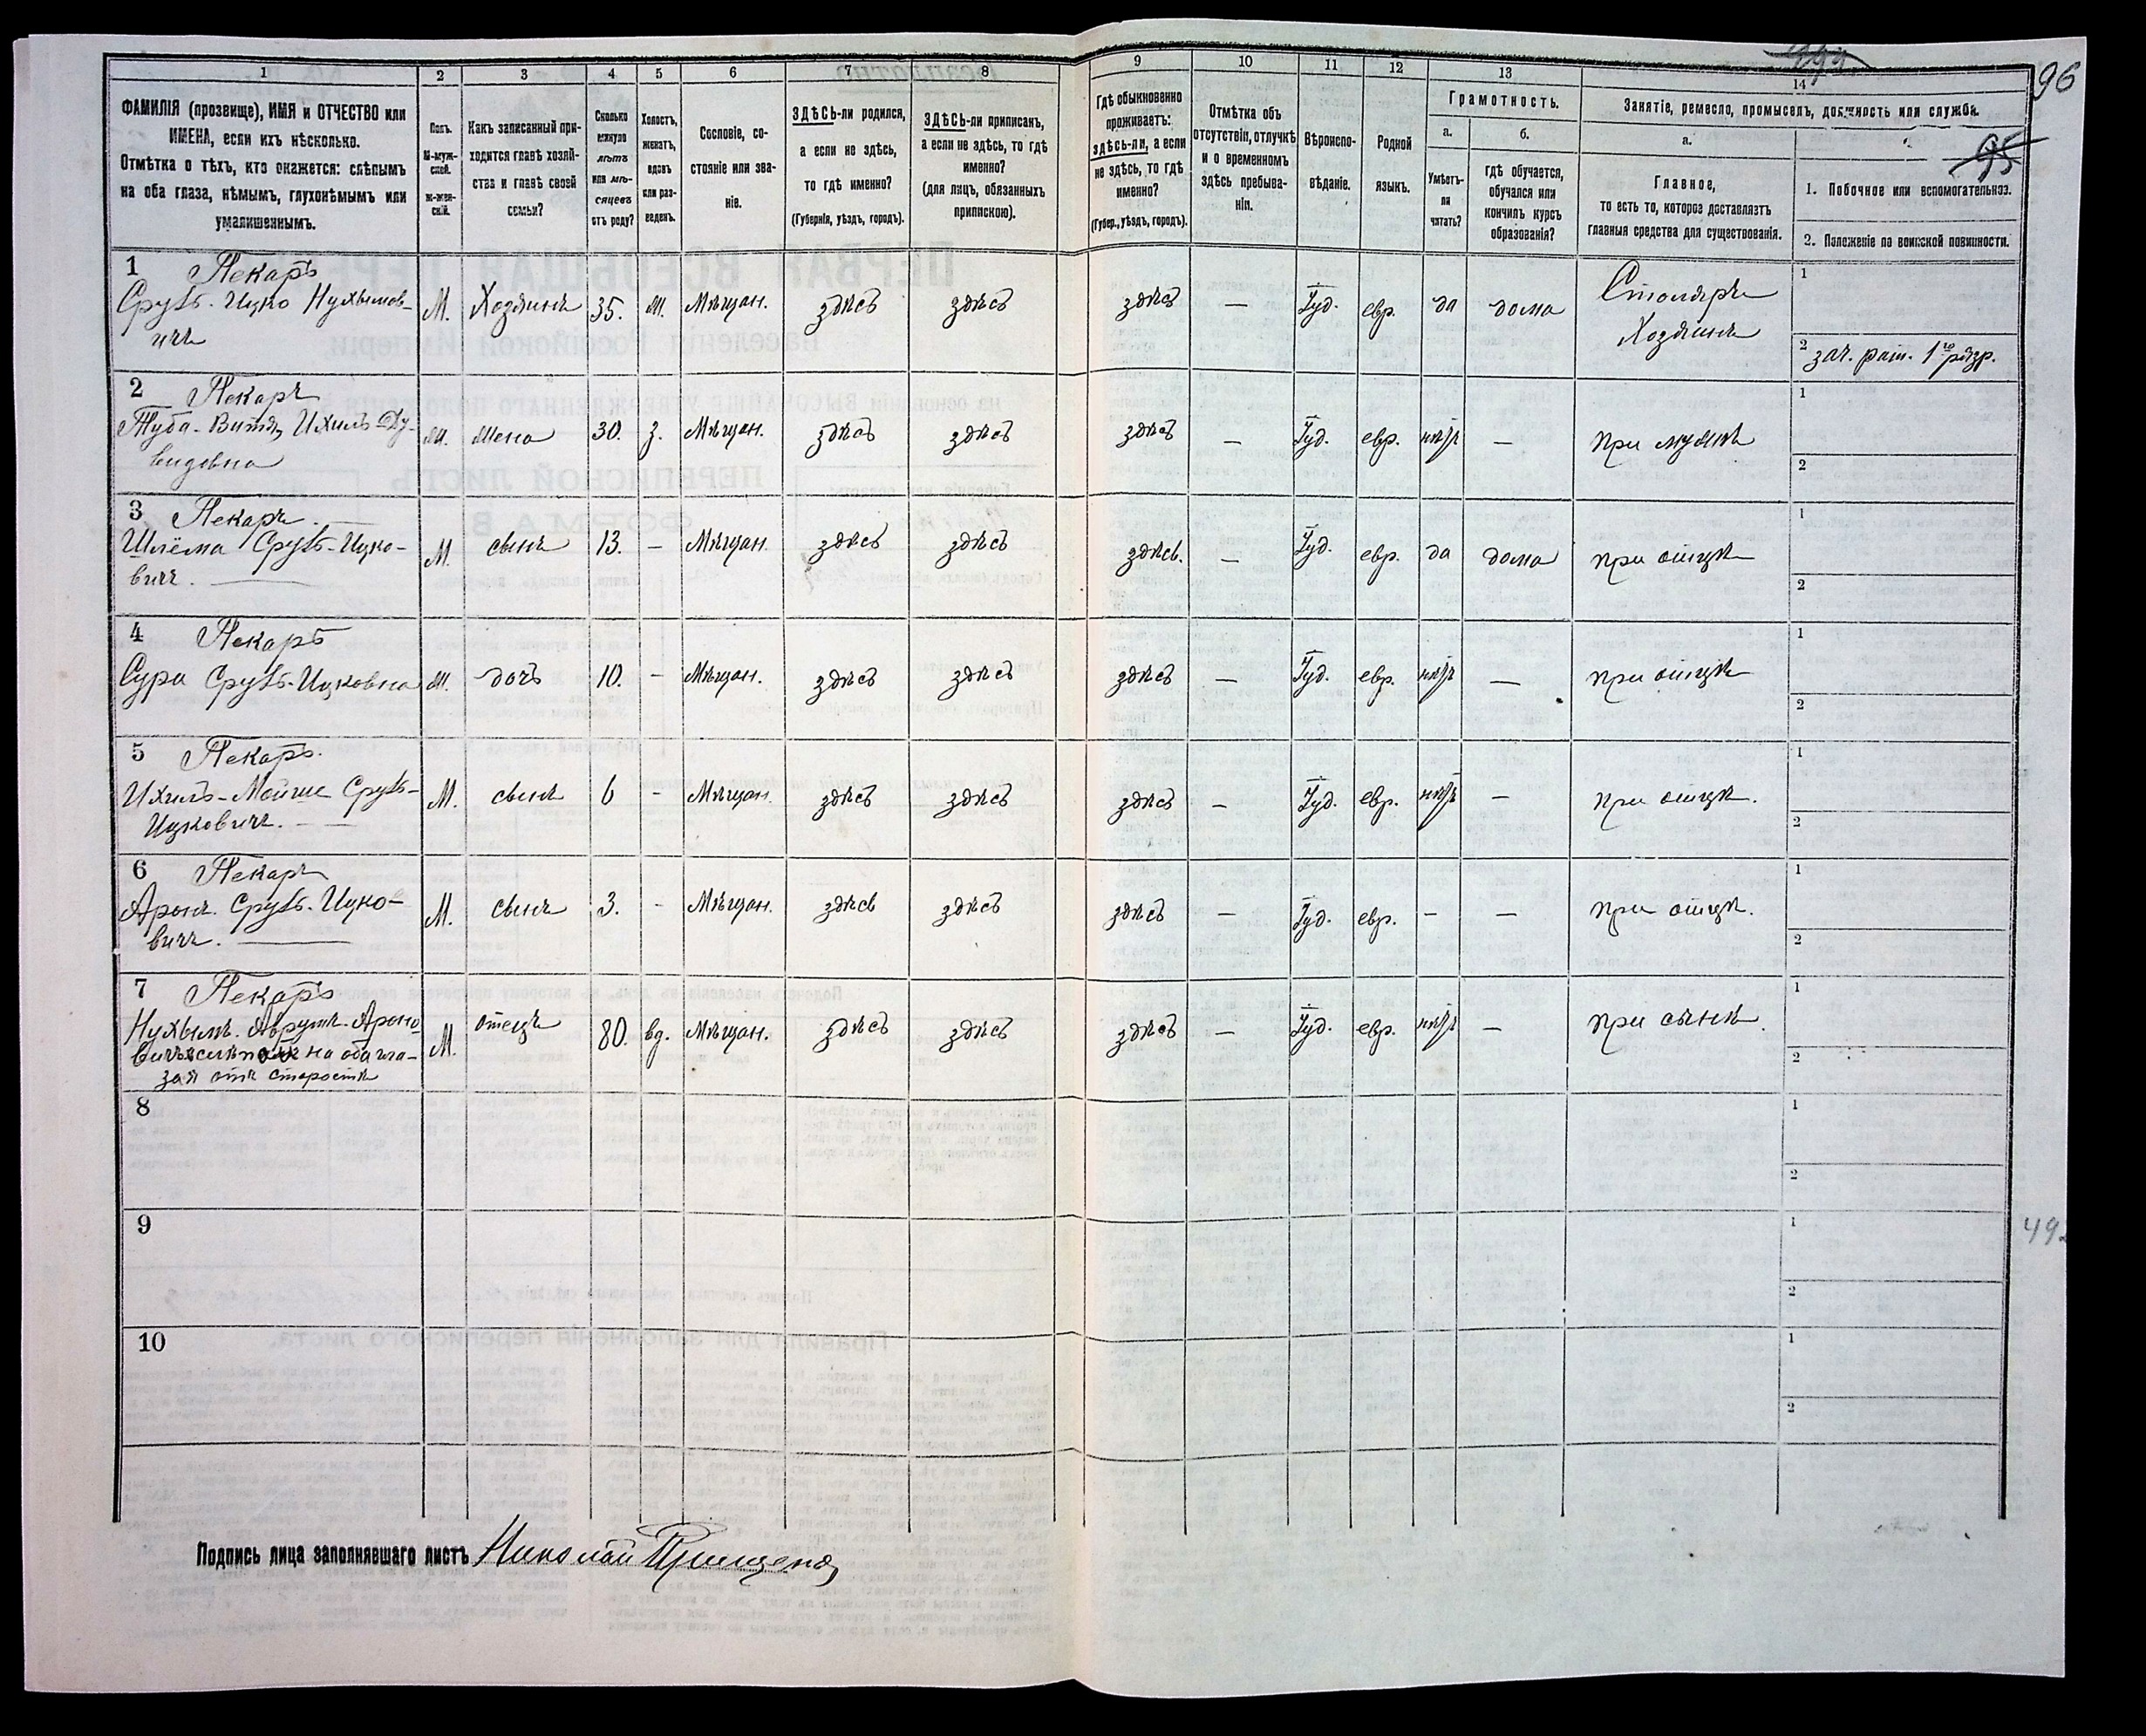 96
95
1
2
3
4
5
6
7
8
9
10
11
12
13
14
ФАМИЛІЯ (прозвище), ИМЯ и ОТЧЕСТВО или
ИМЕНА, если ихъ нѣсколько.
Отмѣтка о тѣхъ, кто окажется: слѣпымъ
на оба глаза, нѣмымъ, глухонѣмымъ или
умалишеннымъ.
Полъ.
М-муж-
ской.
ж-жен-
скій.
Какъ записанный при-
ходится главѣ хозяй-
ства и главѣ своей
семьи?
Сколько
минуло
лѣтъ
или мѣ-
сяцевъ
отъ роду?
Холостъ,
женатъ,
вдовъ
или раз-
веденъ.
Сословіе, со-
стояніе или зва-
ніе.
ЗДѢСЬ-ли родился,
а если не здѣсь,
то гдѣ именно?
(Губернія, уѣздъ, городъ).
ЗДѢСЬ-ли приписанъ,
а если не здѣсь, то гдѣ
именно?
(для лицъ, обязанныхъ
припискою).
Гдѣ обыкновенно
проживаетъ:
здѣсь-ли, а если
не здѣсь, то гдѣ
именно?
(Губер., уѣздъ, городъ).
Отмѣтка объ
отсутствіи, отлучкѣ
и о временномъ
здѣсь пребыва-
ніи.
Вѣроиспо-
вѣданіе.
Родной
языкъ.
Грамотность.
а.
б.
Умѣетъ-
ли
читать?
гдѣ обучается,
обучался или
кончилъ курсъ
образованія?
Занятіе, ремесло, промыселъ, должность или служба.
а.
Главное,
то есть то, которое доставляетъ
главныя средства для существованія.
1. Побочное или вспомогательное.
2. Положеніе по воинской повинности.
1 Пекаръ
Сруль-Ицко Нухымов-
ичъ
М. Хозяинъ 35. Мѣщан. здѣсь здѣсь здѣсь — Іуд. евр. да дома Столяръ
Хозяинъ
1
2 зач. рат. 1го разр.
2 Пекаръ
Ихилъ-Ду-
видовна
жена 30. з. Мѣщан. здѣсь здѣсь здѣсь — Іуд. евр. нѣтъ — при мужѣ
1
2
3 Пекаръ.
Шлёма Сруль-Ицко-
вичъ.
М. сынъ 13. — Мѣщан. здѣсь здѣсь здѣсь. — Іуд. евр. да дома при отцѣ
1
2
4 Пекаръ
Сура Сруль-Ицковна
дочь 10. - Мѣщан. здѣсь здѣсь здѣсь — Іуд. евр. нѣтъ — при отцѣ
1
2
5 Пекаръ.
Ихилъ-Мойше Сруль-
Ицковичъ.
М. сынъ 6 - Мѣщан. здѣсь здѣсь здѣсь — Іуд. евр. нѣтъ — при отцѣ.
1
2
6 Пекаръ
Аронъ. Сруль-Ицко-
вичъ.
М. сынъ 3. - Мѣщан. здѣсь здѣсь здѣсь — Іуд. евр. — — при отцѣ.
1
2
7 Пекаръ
Нухымъ-Аврумъ-Ароно
вичъ на оба гла-
за отъ старости
М. отецъ 80. вд. Мѣщан. здѣсь здѣсь здѣсь — Іуд. евр. нѣтъ — при сынѣ.
1
2
8
1
2
9
1
2
49.
10
1
2
Подпись лица заполнявшаго листъ Николай